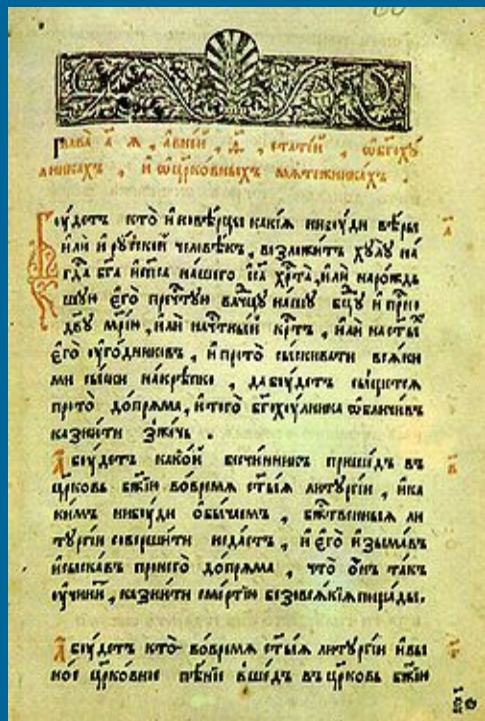 Глава̀ а҃ ѧ , а҆вне́й , статей , ѡ҆бг҃оху́
лникахъ , и҆ ѡ҆цр҃ко́вныхъ мѧте́жникахъ .
Бꙋ́детъ кто̀ и҆новѣ́рцы какі́ѧ нибꙋ́ди вѣ́ры
и҆лѝ и҆ рꙋ́ской человѣ́къ , возложи́тъ хꙋлꙋ̀ на́
гд҇а бг҃а и҆ сп҃са на́шего і҆с҃а хр҇та̀ , и҆лѝ наро́жд
шꙋю є҆го̀ преч҇тꙋю влд҇чцꙋ на́шꙋ бц҃ꙋ и҆ прн҇о
дв҃ꙋ мр҃і́ю , и҆лѝ на ч҇тны́й кр҇тъ , и҆лѝ на ст҃ы́хъ
є҆го̀ ᲂу҆го́дниковъ , и҆ прото̀ сы́скивати всѧ́ки
ми сы́ски накрѣ́пко , да бꙋ́детъ сы́щетсѧ
про то̀ допрѧ́ма , и҆ того̀ бг҃охꙋ́лника ѡ҆бличи́въ
казни́ти зже́чь .
а҃
А҆ бꙋ́детъ како́й безчи́нникъ прише́дъ въ
цр҃ковь бж҃ію во́время ст҃ы́ѧ литꙋргі́и , и҆ ка
ки́мъ нибꙋ́ди ѻ҆бы́чаемъ , бж҇твенныѧ ли
тꙋргі́и соверши́ти неда́стъ , и҆ є҆го̀ и҆зыма́въ
и҆ сыска́въ про него̀ допрѧ́ма , что̀ ѻ҆́нъ такъ
ᲂу҆чини́т , казни́ти сме́ртію безовсѧ́кіѧ поща́ды .
в҃
А҆ бꙋ́детъ кто̀ во́время ст҃ы́ѧ литꙋргі́и и҆ вы
ное цр҃ко́вное пѣ́ніе вше́дъ въ цр҃ковь бж҃ію
г҃